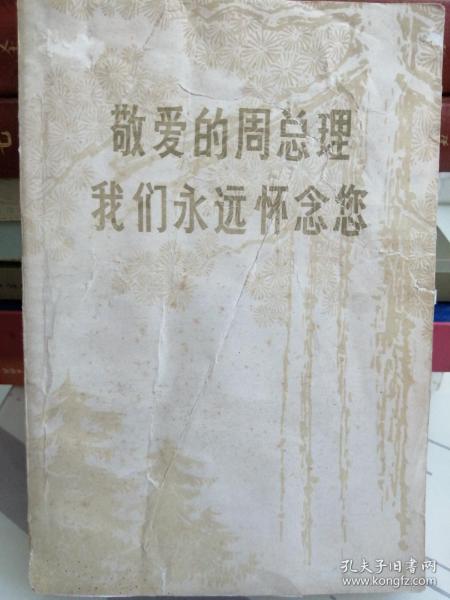 敬爱的周总理
我们永远怀念您
孔夫子旧书网
www.kongfz.com